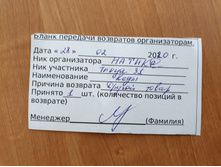 Бланк передачи возвратов организаторам
Дата «28» 02 2020 г.
Ник организатора НАТИКА
Ник участника
Наименование
Причина возврата другой товар
Принято 1 шт. (количество позиций в
возврате)
Менеджер (Фамилия)